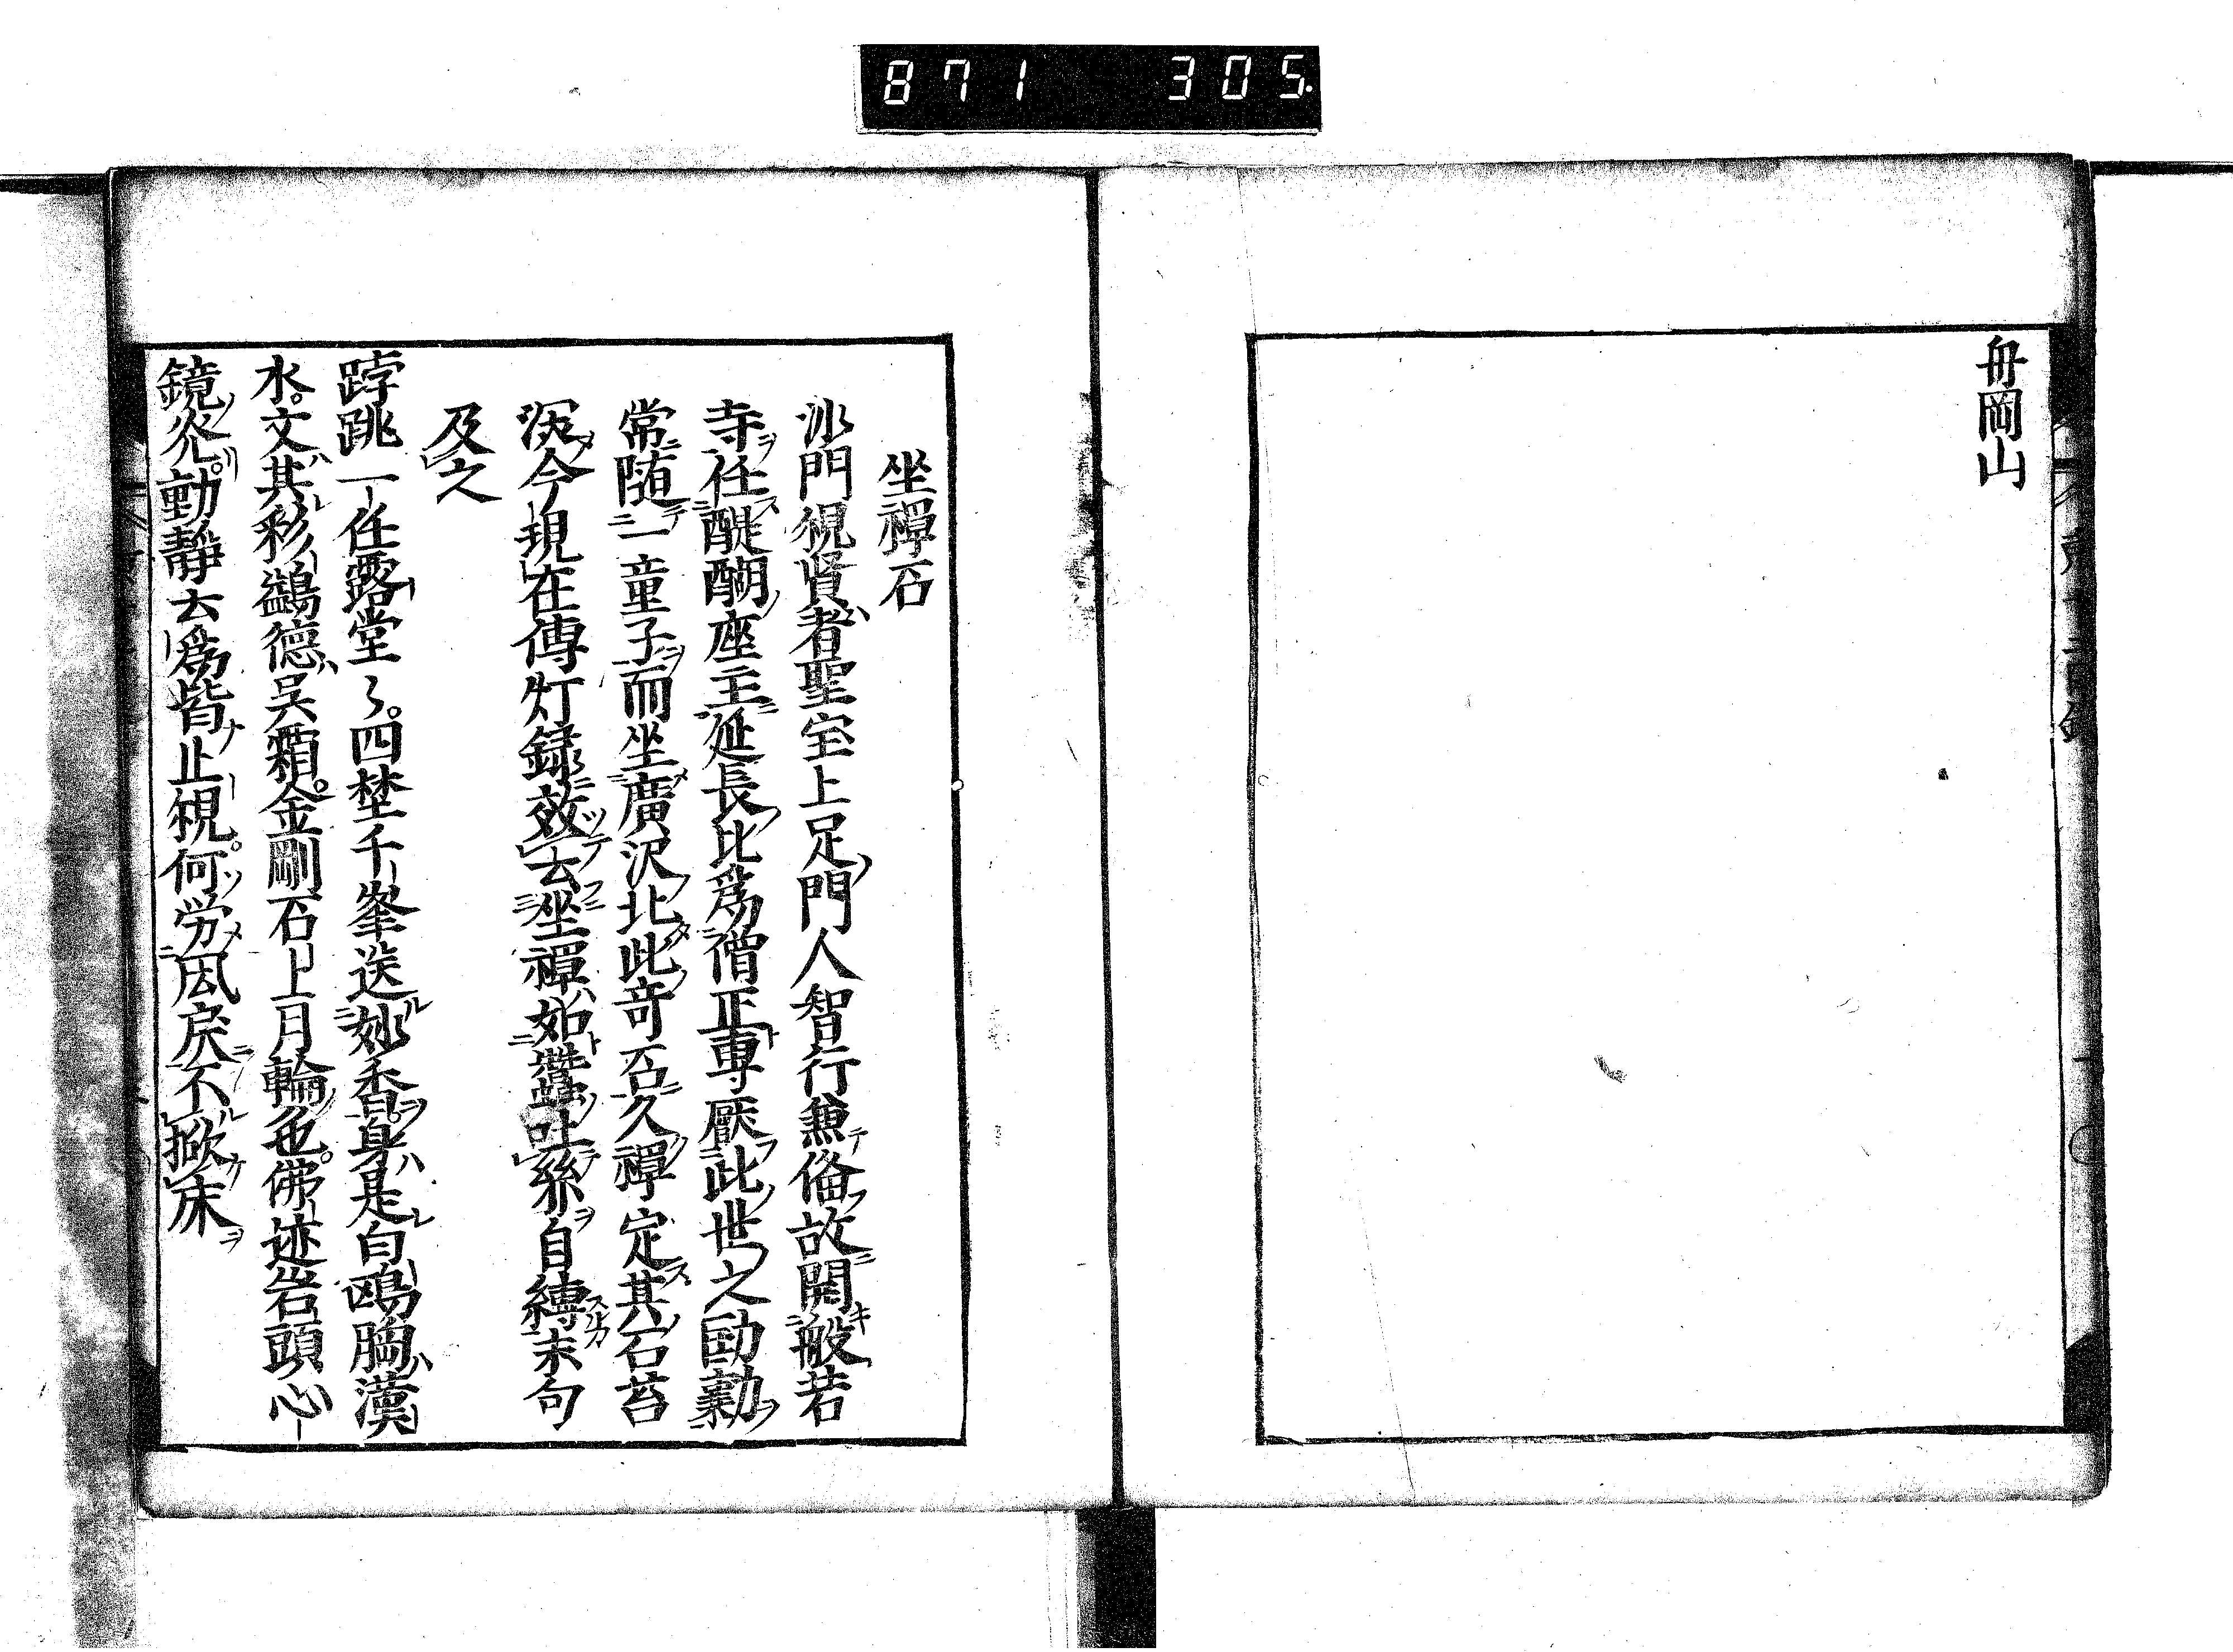 871 305
舟岡山
坐禪石
沙門視賢者聖宝上足門人智行兼俻故開般若
寺任醍醐座主延長比爲僧正專厭此世之勤
常随一童子而坐廣沢北此奇石久禪定其石苔
深今現在傳灯録效去坐禪如蠶吐絲自縛末句
及之
跨跳一任露堂々四埜千峯送妙香身是白鴎胸漢
水文其彩鷁德吴艒金剛石上月輪也佛迹岩頭心
鏡光動静去爲皆止視何労凬戻不掀床